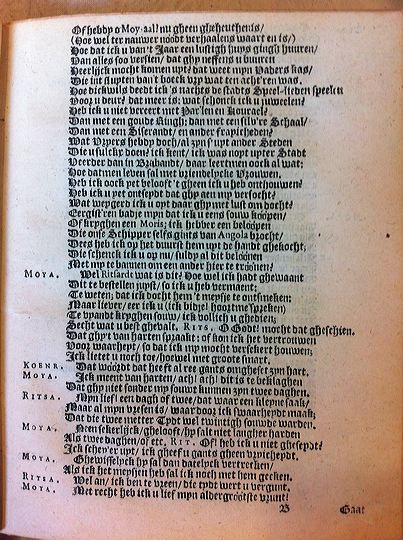 Of hebdy o Moy-aal! nu gheen gheheuchenis/
(Hoe wel ter nauwer noodt verhaalens waart en is/)
Hoe dat ick u van't Jaar een lustigh huys gingh huuren/
Van alles soo versien/ dat ghy neffens u buuren
Heerlijck mocht komen upt? dat weet myn Vaders kas/
Die int slupten van't boeck vry wat ten acht'ren was.
Hoe dickwils deedt ick 's nachts de stadts Speel-lieden speelen
Voor u deur? dat meer is: wat schonck ick u juweelen?
Heb ick u niet vereert met Paerlen en Kourael?
Dan met een goude Ringh; dan met een silv're Schaal/
Dan met een Sijerandt/ en ander frayicheden?
Wat Vyvers hebdy doch/ al zyn s'upt ander Steden
Die u sulckx doen? ick kent/ ick was noyt upter Stadt
Veerder dan in Brabandt/ daar leertmen oock al wat:
Hoe datmen leven sal met vriendelycke Vrouwen.
Heb ick oock yet belooft 't gheen ick u heb onthouwen?
Heb ick u yet ontseydt dat ghy aen my versocht?
Wat weygerd ick u oyt daar ghy met lust om docht?
Eergist'ren badje myn dat ick u eens souw koopen/
Of kryghen een Moris; ick hebber een beloopen
Die onse Schipper selfs gints van Angola brocht/
Dees heb ick op het duurst hem upt de handt ghekocht;
Die schenck ick u op nu/ suldy al dit beloonen
Met my te bannen om een ander hier te troonen?
MOYA. Wel Ritsardt wat is dit? Hoe wel ick hadt ghewaant
Dit te bestellen juyst/ so ick u heb vermaent;
Te weten; dat ick docht hem 't meysje te ontsmeken;
Maar liever/ eer ick u (ick bidje! hoort me spreken)
Te vyandt kryghen souw/ ick vollich u ghebien;
Secht wat u best ghevalt. RITS. O Godt! mocht dat gheschien.
Dat ghy't van harten spraakt; of kon ick het vertrouwen
Voor waarheyt/ so dat ick my mocht versekert houwen;
Ick lietet u noch toe/ hoewel met groote smart.
KOENR. Dat woordt dat heeft al ree gants omgheset zyn hart.
MOYA. Ick meent van harten/ ach! ach! dit is te beklaghen
Dat ghy niet sonder my souwt kunnen zyn twee daghen.
RITSA. Myn lief! een dagh of twee/ dat waar een kleyne saak/
Maar al myn vresen is/ waar door ick swaarheydt maak;
Dat die twee metter Tydt wel twintigh souwde warden.
MOYA. Neen sekerlijck/ ghelooft/ hy salt niet laugher harden
Als twee daghen/ of etc. RIT. Of! heb ick u niet gheseydt?
Ick schey'er upt/ ick gheef u gants gheen vryicheydt.
MOYA. Ghewisselyck hy sal dan datelyck vertrecken/
Als ick het meyshen heb sal ick noch met hem gecken.
RITSA. Wel an/ ick ben te vreen/ die tydt wert u vergunt.
MOYA. Met recht heb ick u lief myn aldergrootste vrunt!
B Gaat